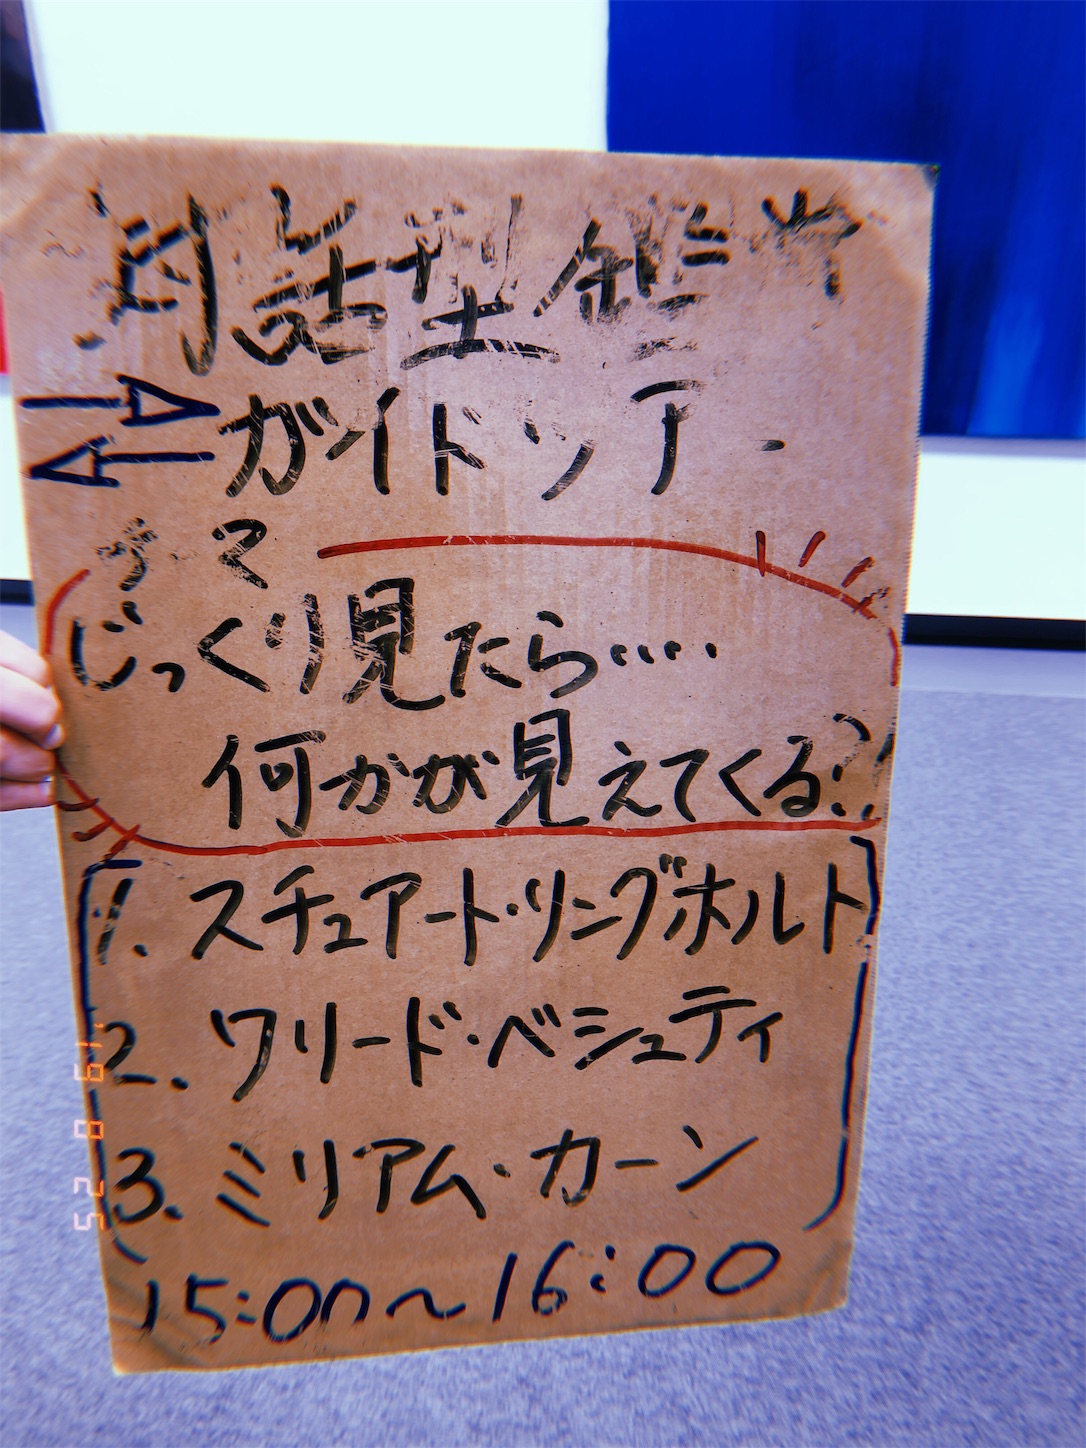 対話型鑑賞
ガイドツアー
テーマ
じっくり見たら‥‥
何かが見えてくる?!
1. スチュアート・リングホルト
2. ワリード・ベシュティ
3. ミリアム・カーン
15:00〜16:00
'19 8 25